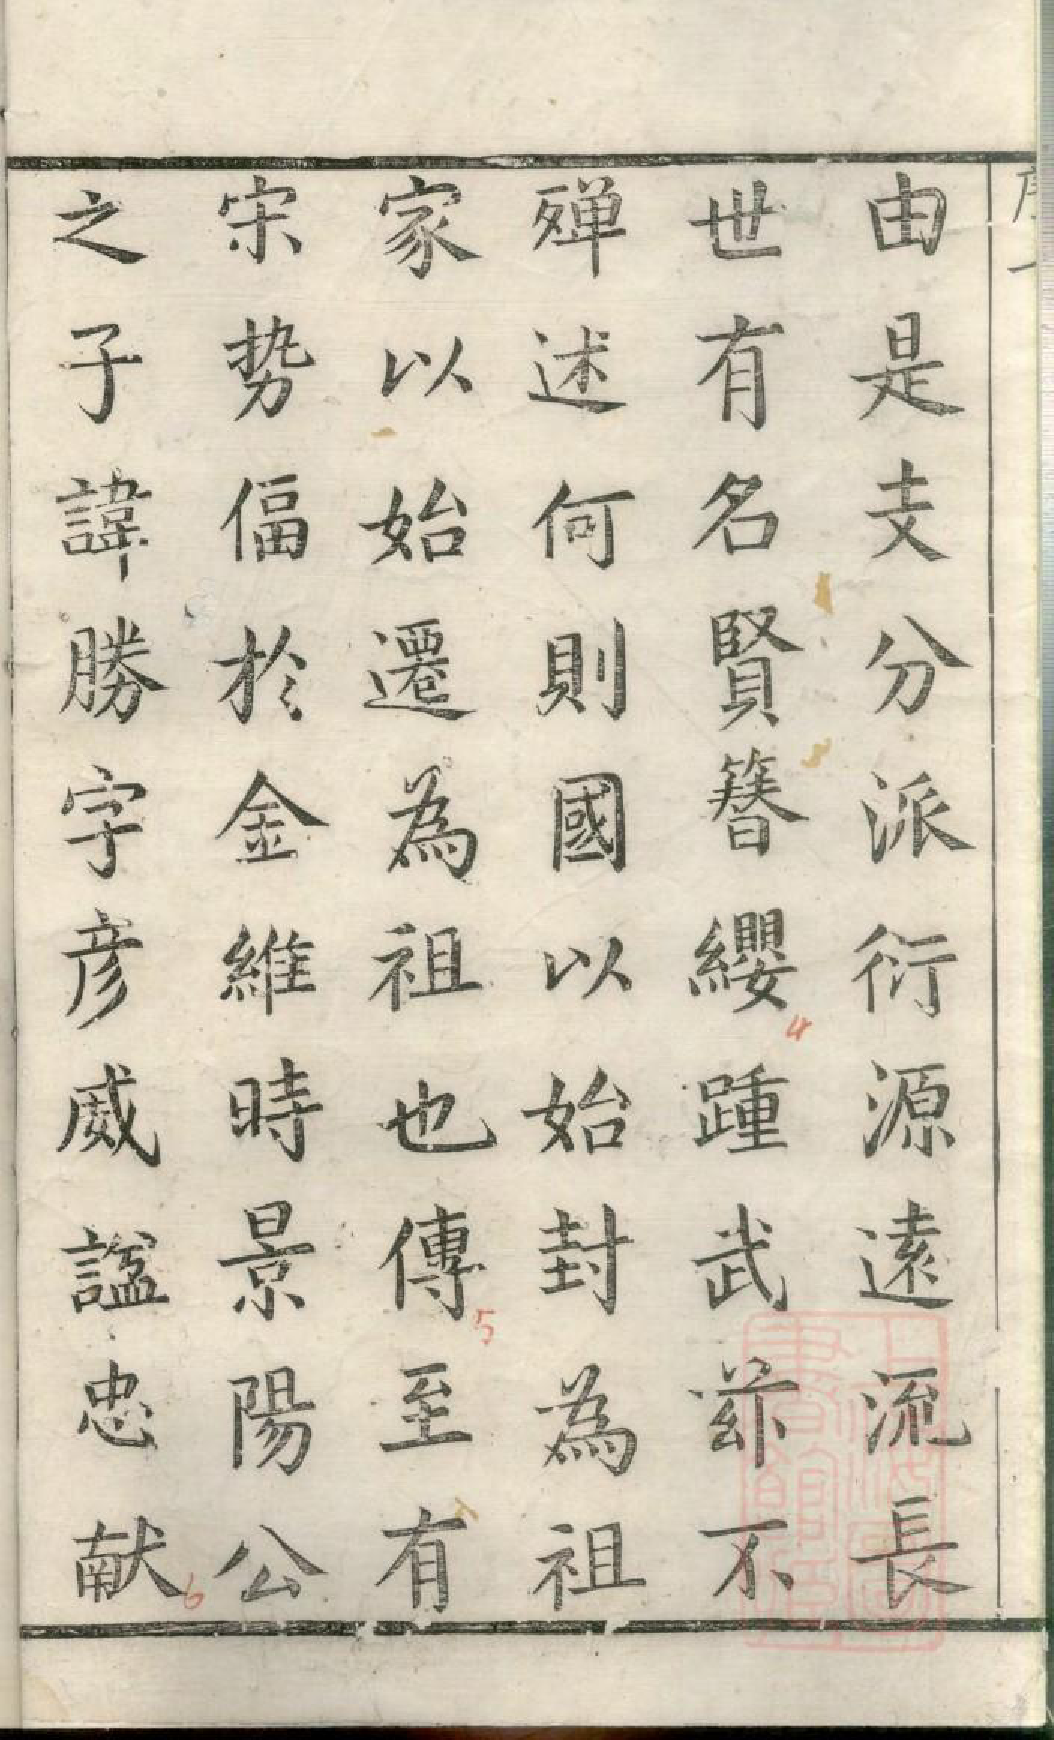 由是支分派衍源遠流長
世有名賢簪纓踵武茲不
殫述何則國以始封為祖
家以始遷為祖也傳至有
宋势偪於金維時景陽公
之子諱勝字彥威諡忠献